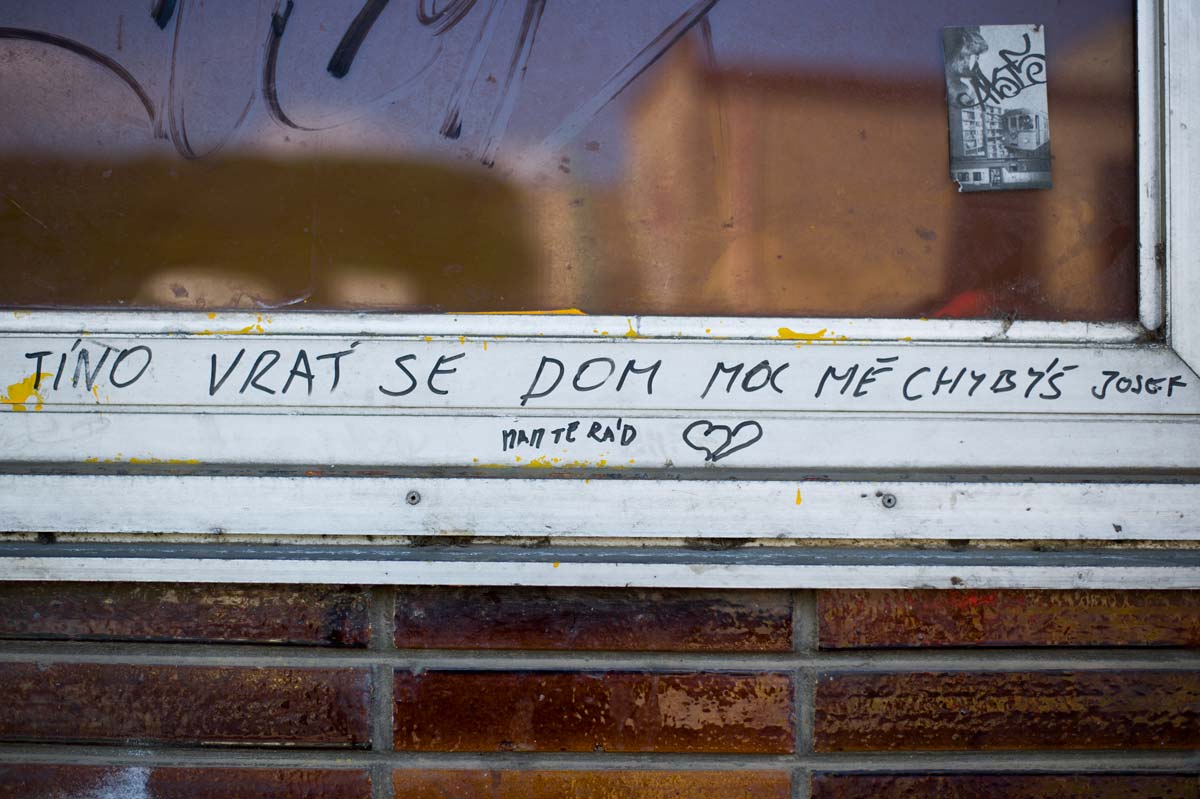 TÍNO VRAŤ SE DOM MOC MĚ CHYBÝŠ JOSEF
MAM TĚ RÁD